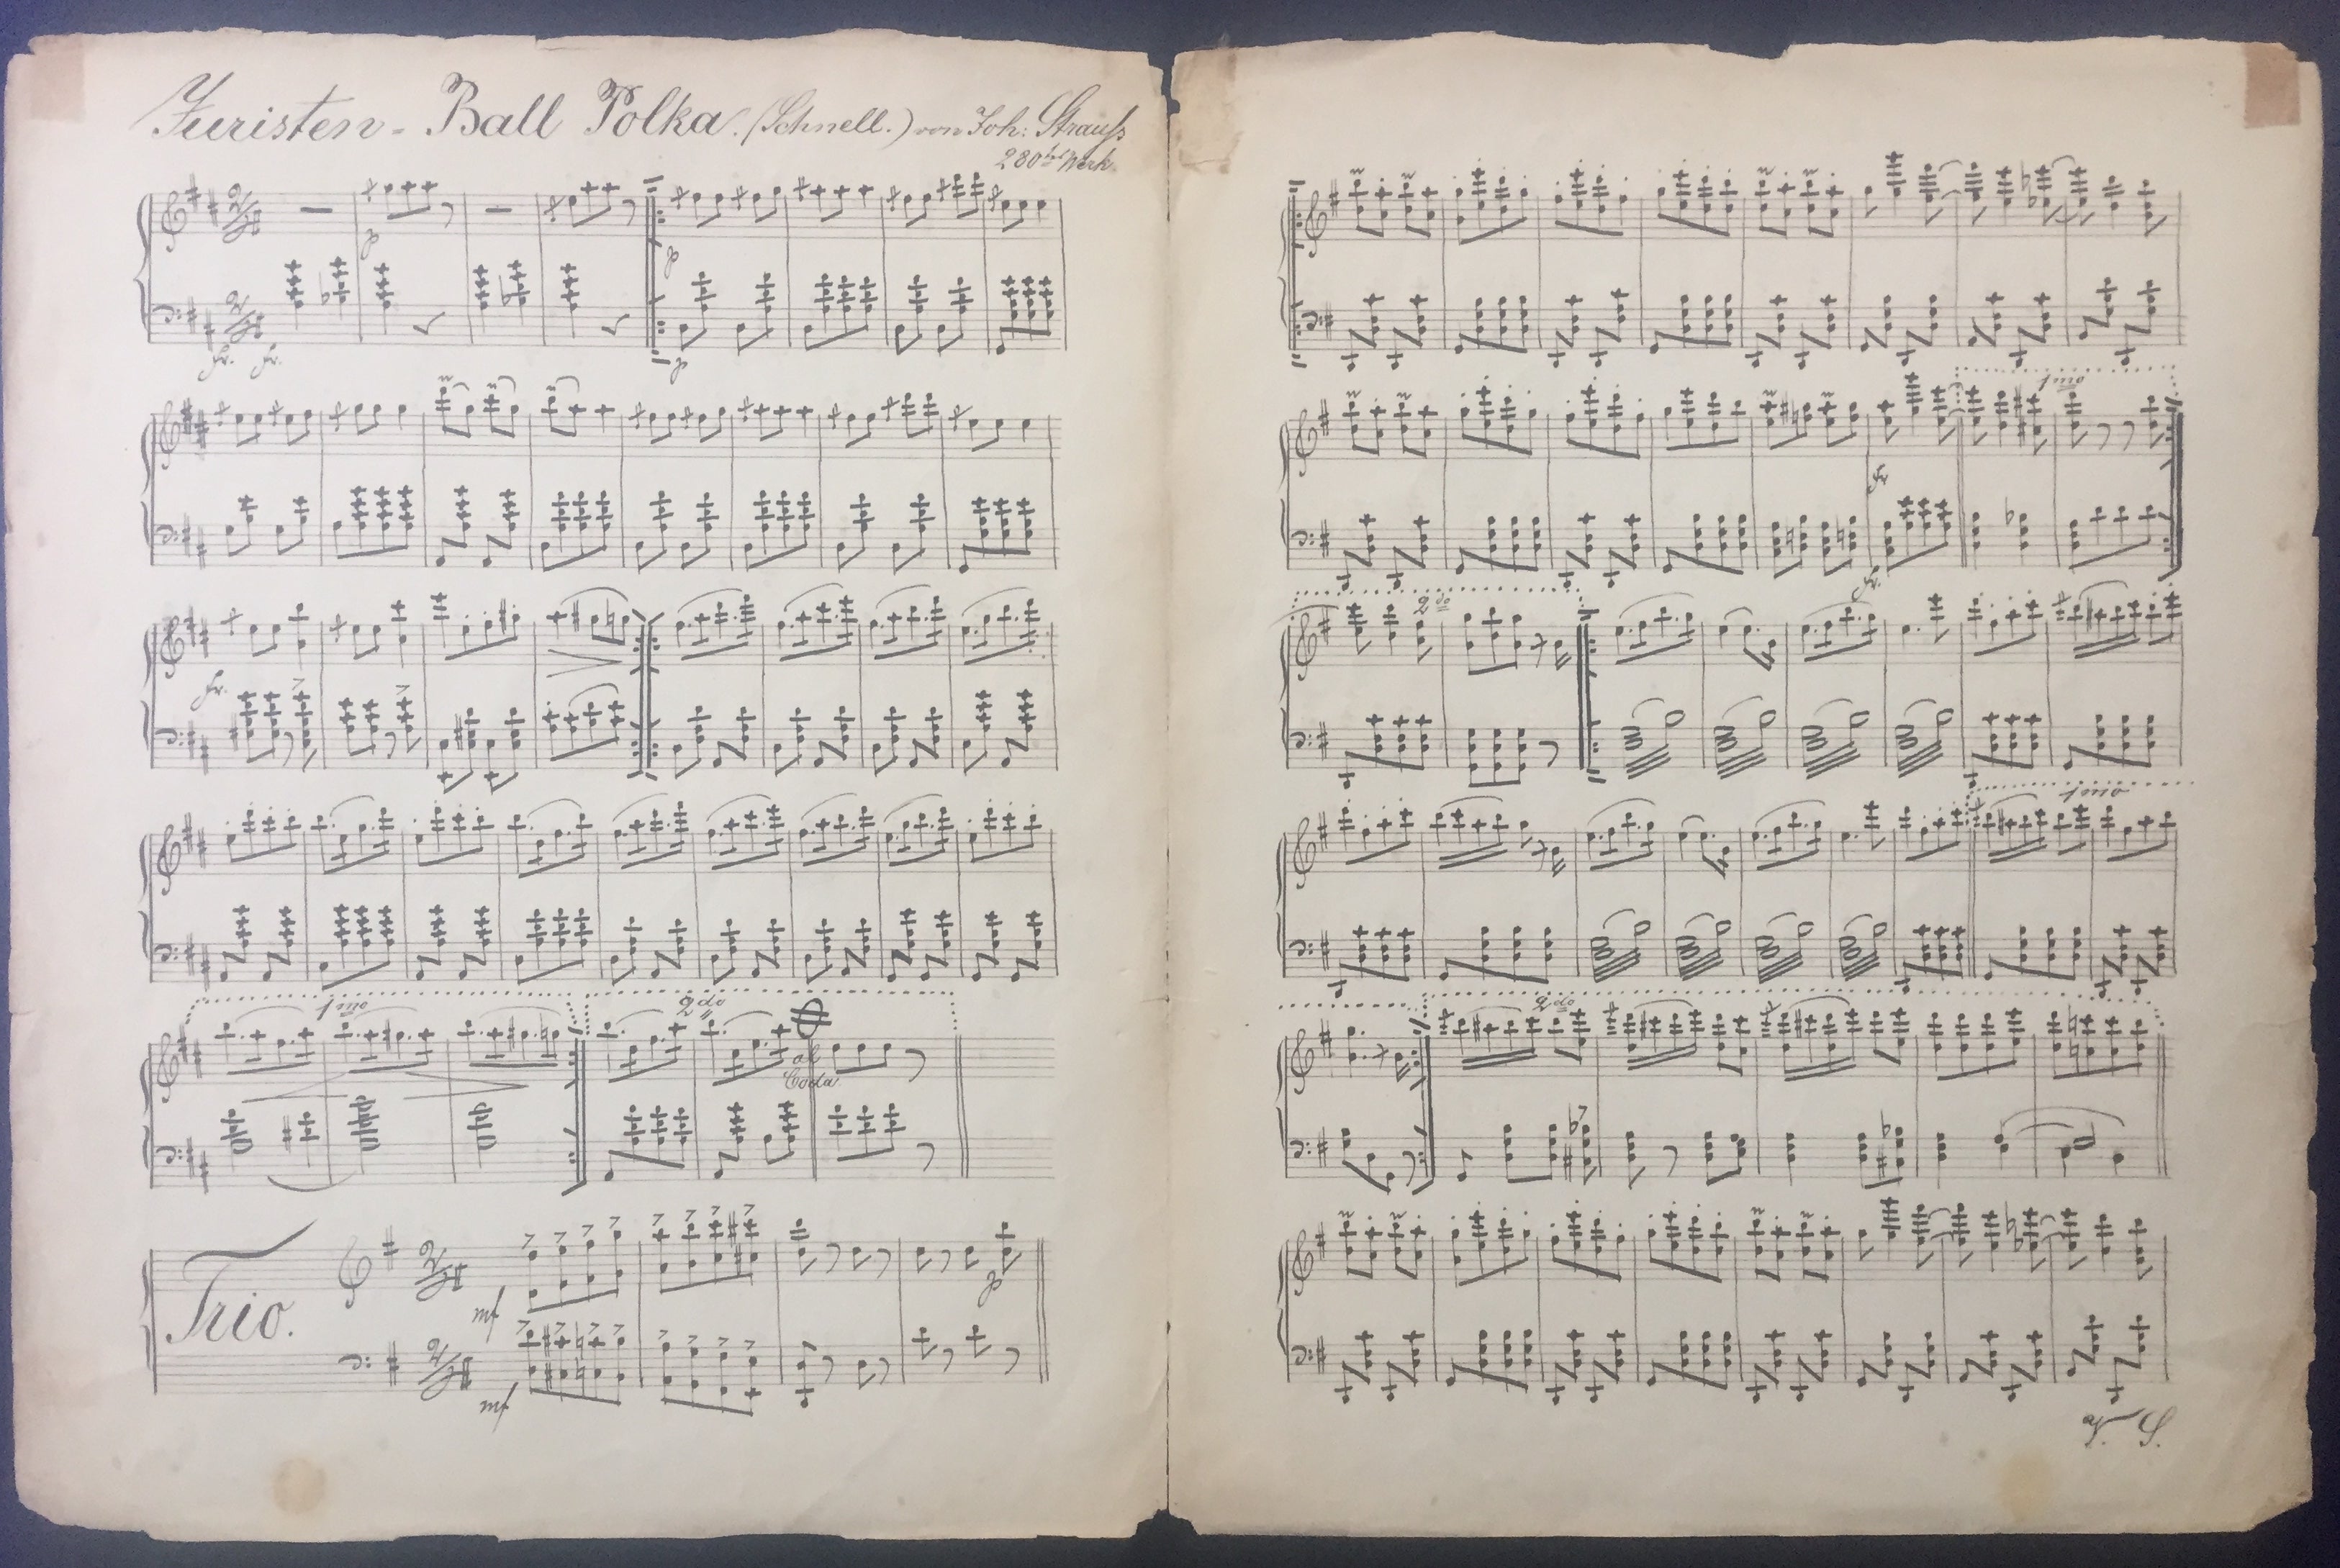 Juristen-Ball Polka. (Schnell.) von Joh: Strauß
280tes Werk
2/4
p
2/4
fz. fz.
p
p
fz.
1mo
2do
al
Coda
Trio.
2/4
mf
p
2/4
mf
1mo
fz
fz.
2do
1mo
2do
V. S.